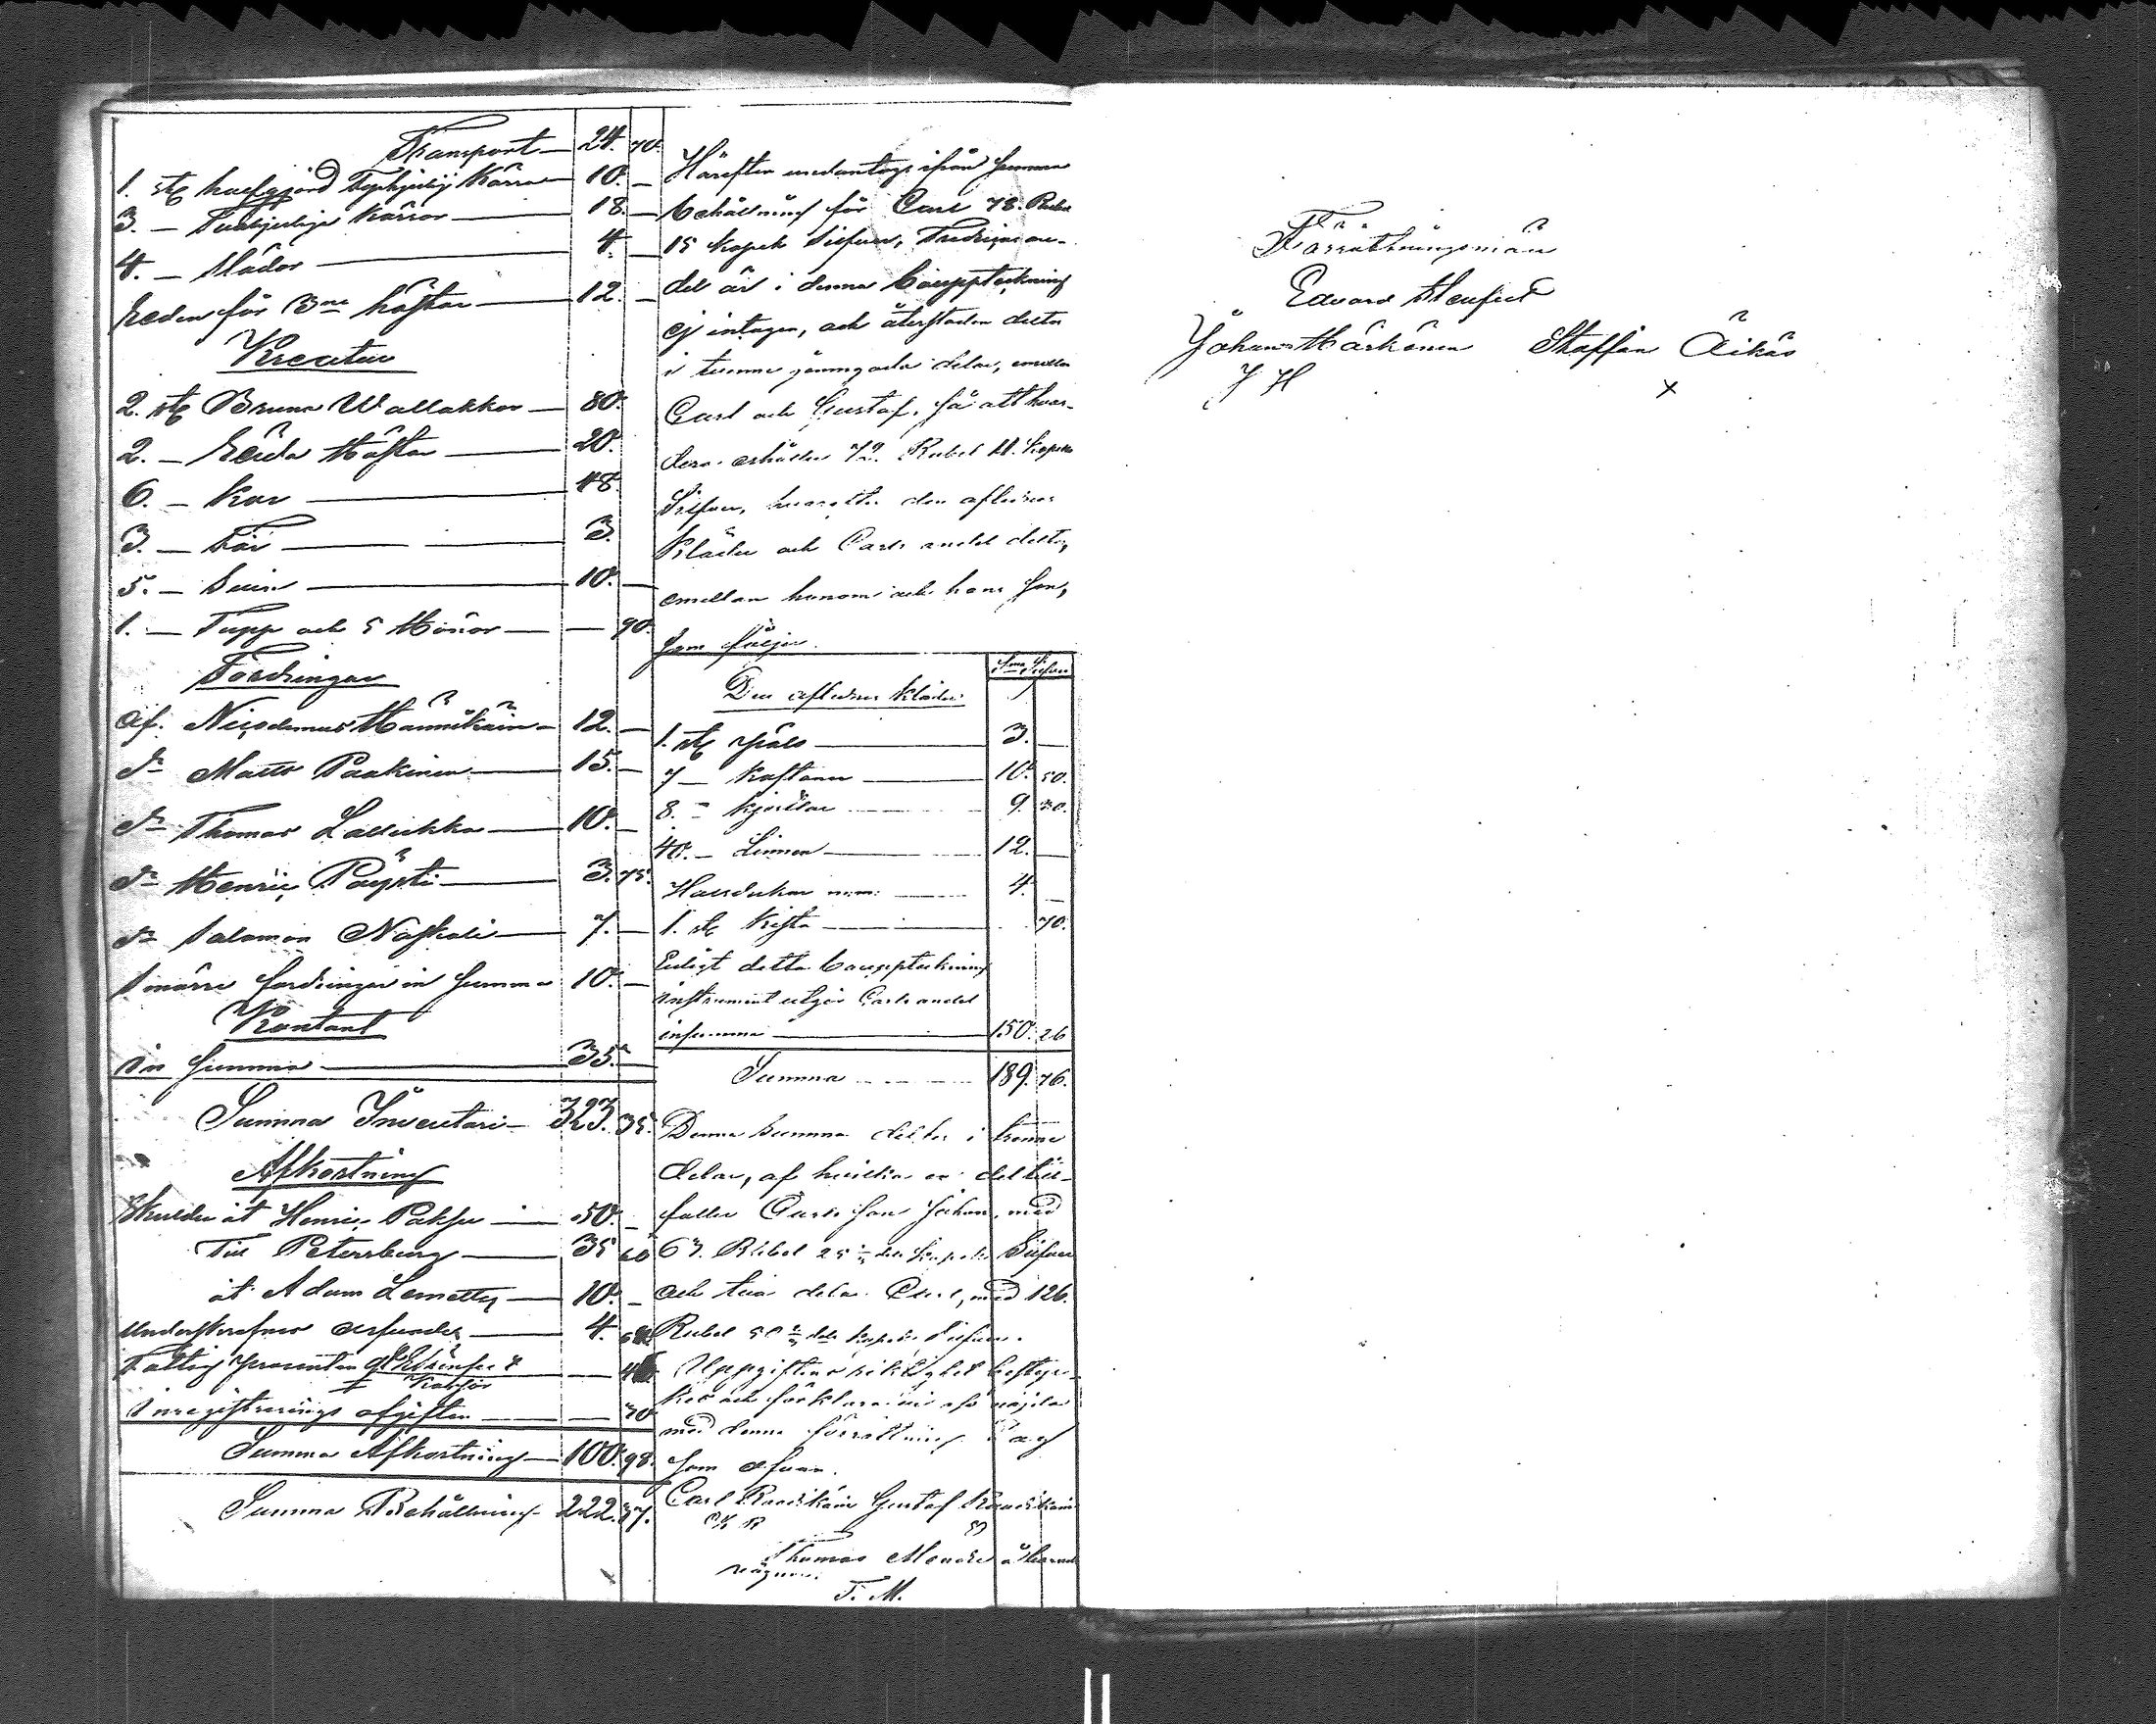 Transport — 24. 70.
1. st halfgjord Kärra — 10. —
3. — Kärror — 18. —
4. — Slädor — 4. —
Seden för 3ne hästar — 12. —
Kreatur
2. st Bruna Wallakker — 80.
2. — Röda Hästar — 20.
6. — Kor — 48.
3. — Får — 3.
5. — Svin — 10. —
1. — Tupp och 5 Hönor — — 90.
Fordringar
Af. Nicodemus Hännikäin — 12. —
do Matts Paakinen — 15. —
do Thomas Lallukka — 10. —
do Henric Pöysti — 3. 75.
do Salomon Naskali — 7. —
Smärre fordringar in summa 10. —
Kontant
in Summa — 35. —
Summa Inventari — 323. 35.
Afkortning
Skulder åt Henric Paksu — 50. —
Till Petersburg — 35 60
åt Adam Lemetty — 10. —
Underskrefnes arfvode — 4.
Fattig procenten
Inregistrerings afgiften — — 30
Summa Afkortning — 100. 98.
Summa Behållning — 222. 37.
Härefter undantags ifrån Summa
behållning för Carl 78. Rubel
15 kopek Silfver,
del är i denna bouppteckning
ej intagen, och återstoden delta
i tvenne jämngoda delar, emellan
Carl och Gustaf, så att hvar-
dera erhåller 72. Rubel 11. kopek
Silfver, den aflidnes
Kläder och Carls andel delta,
emellan honom och hans son,
som följer.
Silfver
Den aflidnes kläder
1. st päls — 3. —
7 — kaftaner — 10. 50.
8. — kjortlar — 9. 30.
40. — Linnen — 12. —
Halsdukar — 4. —
1. st Kista — 70.
Enligt detta bouppteckning
instrument utgör Carls andel
insumma — 150. 26
Summa — 189. 76.
Denna summa deltes i trenne
delar, af hvilka en del till-
faller Carls son Johan, med
63. Rubel 25 kopek Silfver
och tvä delar Carl, med 126.
Rubel 50 kopek Silfver.
Uppgiftens riktighet bestyr-
kes och förklara sig nöjda
med denna förrättning Dag
som ofvan.
Carl Raadikäin Gustaf Raadikain
Thomas
T. M.
Förrättningsmän
Edvard
Johan Härkönen Staffan Äikäs
J H X